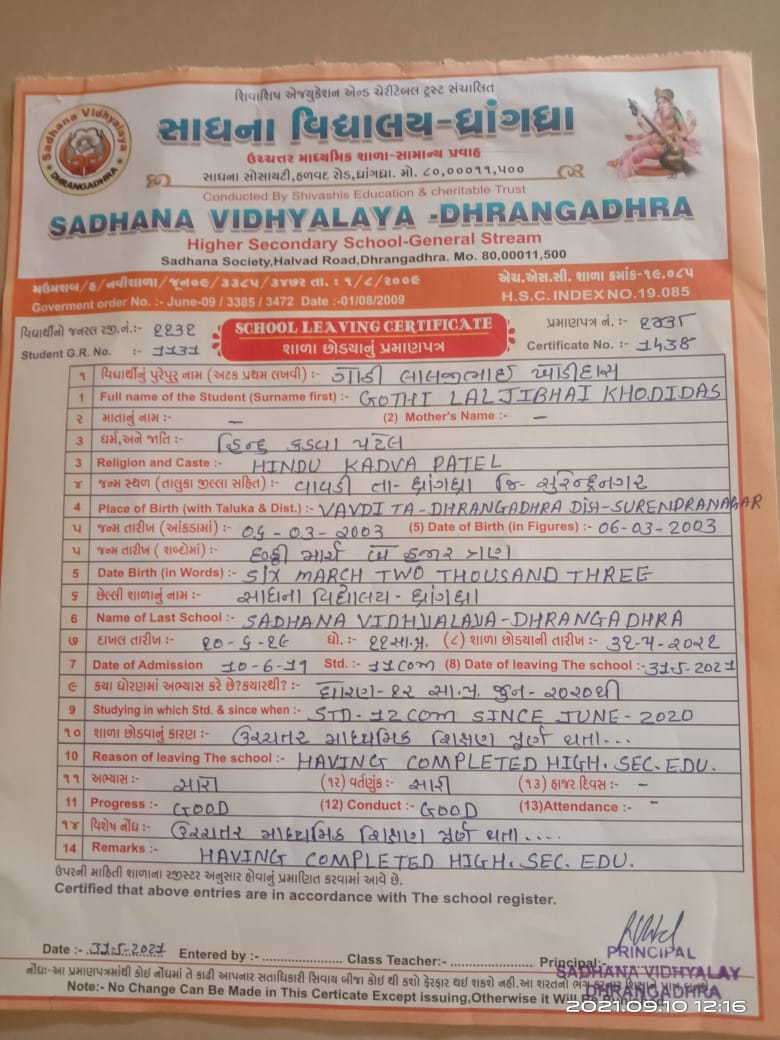 શિવાશિષ એજ્યુકેશન એન્ડ ચેરીટેબલ ટ્રસ્ટ સંચાલિત
Sadhana Vidhyalaya
DHRANGADHRA
સાધના વિદ્યાલય-ધ્રાંગધ્રા
ઉચ્ચત્તર માધ્યમિક શાળા-સામાન્ય પ્રવાહ
સાધના સોસાયટી,હળવદ રોડ,ધ્રાંગધ્રા. મો. ૮૦,૦૦૦૧૧,૫૦૦
Conducted By Shivashis Education & cheritable Trust
SADHANA VIDHYALAYA -DHRANGADHRA
Higher Secondary School-General Stream
Sadhana Society,Halvad Road,Dhrangadhra. Mo. 80,00011,500
મઉમશબ/હ/નવીશાળા/જૂન૦૯/૩૩૮૫/૩૪૭૨ તા. : ૧/૮/૨૦૦૯ એચ.એસ.સી. શાળા ક્રમાંક-૧૯.૦૮૫
Goverment order No. :- June-09 / 3385 / 3472 Date :-01/08/2009 H.S.C. INDEX NO. 19.085
વિદ્યાર્થીનો જનરલ રજી.નં.:- ૧૧૩૧ SCHOOL LEAVING CERTIFICATE પ્રમાણપત્ર નં. :- ૧૪૩૮
Student G.R. No. :- 1131 શાળા છોડ્યાનું પ્રમાણપત્ર Certificate No. :- 1438
૧ વિદ્યાર્થીનું પુરેપુરૂ નામ (અટક પ્રથમ લખવી) :- ગોઠી લાલજીભાઈ ખોડીદાસ
1 Full name of the Student (Surname first) :- GOTHI LALJIBHAI KHODIDAS
૨ માતાનું નામ :- – (2) Mother's Name :- –
૩ ધર્મ,અને જાતિ :- હિન્દુ કડવા પટેલ
3 Religion and Caste :- HINDU KADVA PATEL
૪ જન્મ સ્થળ (તાલુકા જીલ્લા સહિત) :- વાવડી તા- ધ્રાંગધ્રા જિ- સુરેન્દ્રનગર
4 Place of Birth (with Taluka & Dist.) :- VAVDI TA-DHRANGADHRA Dist-SURENDRANAGAR
૫ જન્મ તારીખ (આંકડામાં) :- ૦૬-૦૩-૨૦૦૩ (5) Date of Birth (in Figures) :- 06-03-2003
૫ જન્મ તારીખ ( શબ્દોમાં) :- છઠ્ઠી માર્ચ બે હજાર ત્રણ
5 Date Birth (in Words) :- SIX MARCH TWO THOUSAND THREE
૬ છેલ્લી શાળાનું નામ :- સાધના વિદ્યાલય- ધ્રાંગધ્રા
6 Name of Last School :- SADHANA VIDHYALAYA-DHRANGADHRA
૭ દાખલ તારીખ :- ૧૦-૬-૧૯ ધો. :- ૧૧ સા.પ્ર. (૮) શાળા છોડ્યાની તારીખ :- ૩૧-૫-૨૦૨૧
7 Date of Admission 10-6-19 Std. :- 11 COM (8) Date of leaving The school :- 31-5-2021
૯ કયા ધોરણમાં અભ્યાસ કરે છે?કયારથી? :- ધોરણ-૧૨ સા.પ્ર. જુન- ૨૦૨૦થી
9 Studying in which Std. & since when :- STD-12 COM SINCE JUNE-2020
૧૦ શાળા છોડવાનું કારણ :- ઉચ્ચતર માધ્યમિક શિક્ષણ પૂર્ણ થતા...
10 Reason of leaving The school :- HAVING COMPLETED HIGH. SEC. EDU.
૧૧ અભ્યાસ :- સારો (૧૨) વર્તણુંક :- સારી (૧૩) હાજર દિવસ :- –
11 Progress :- GOOD (12) Conduct :- GOOD (13)Attendance :- –
૧૪ વિશેષ નોંધ :- ઉચ્ચતર માધ્યમિક શિક્ષણ પૂર્ણ થતા....
14 Remarks :- HAVING COMPLETED HIGH. SEC. EDU.
ઉપરની માહિતી શાળાના રજીસ્ટર અનુસાર હોવાનું પ્રમાણિત કરવામાં આવે છે.
Certified that above entries are in accordance with The school register.
Date :- 31-5-2021 Entered by :- ...................... Class Teacher:- ...................... Principal:-
PRINCIPAL
SADHANA VIDHYALAY
DHRANGADHRA
નોંધઃ-આ પ્રમાણપત્રમાંથી કોઈ નોંધમાં તે કાઢી આપનાર સતાધિકારી સિવાય બીજા કોઈ થી કશો ફેરફાર થઈ શકશે નહી.આ શરતનો ભંગ
Note:- No Change Can Be Made in This Certicate Except issuing,Otherwise it Will
2021.09.10 12:16